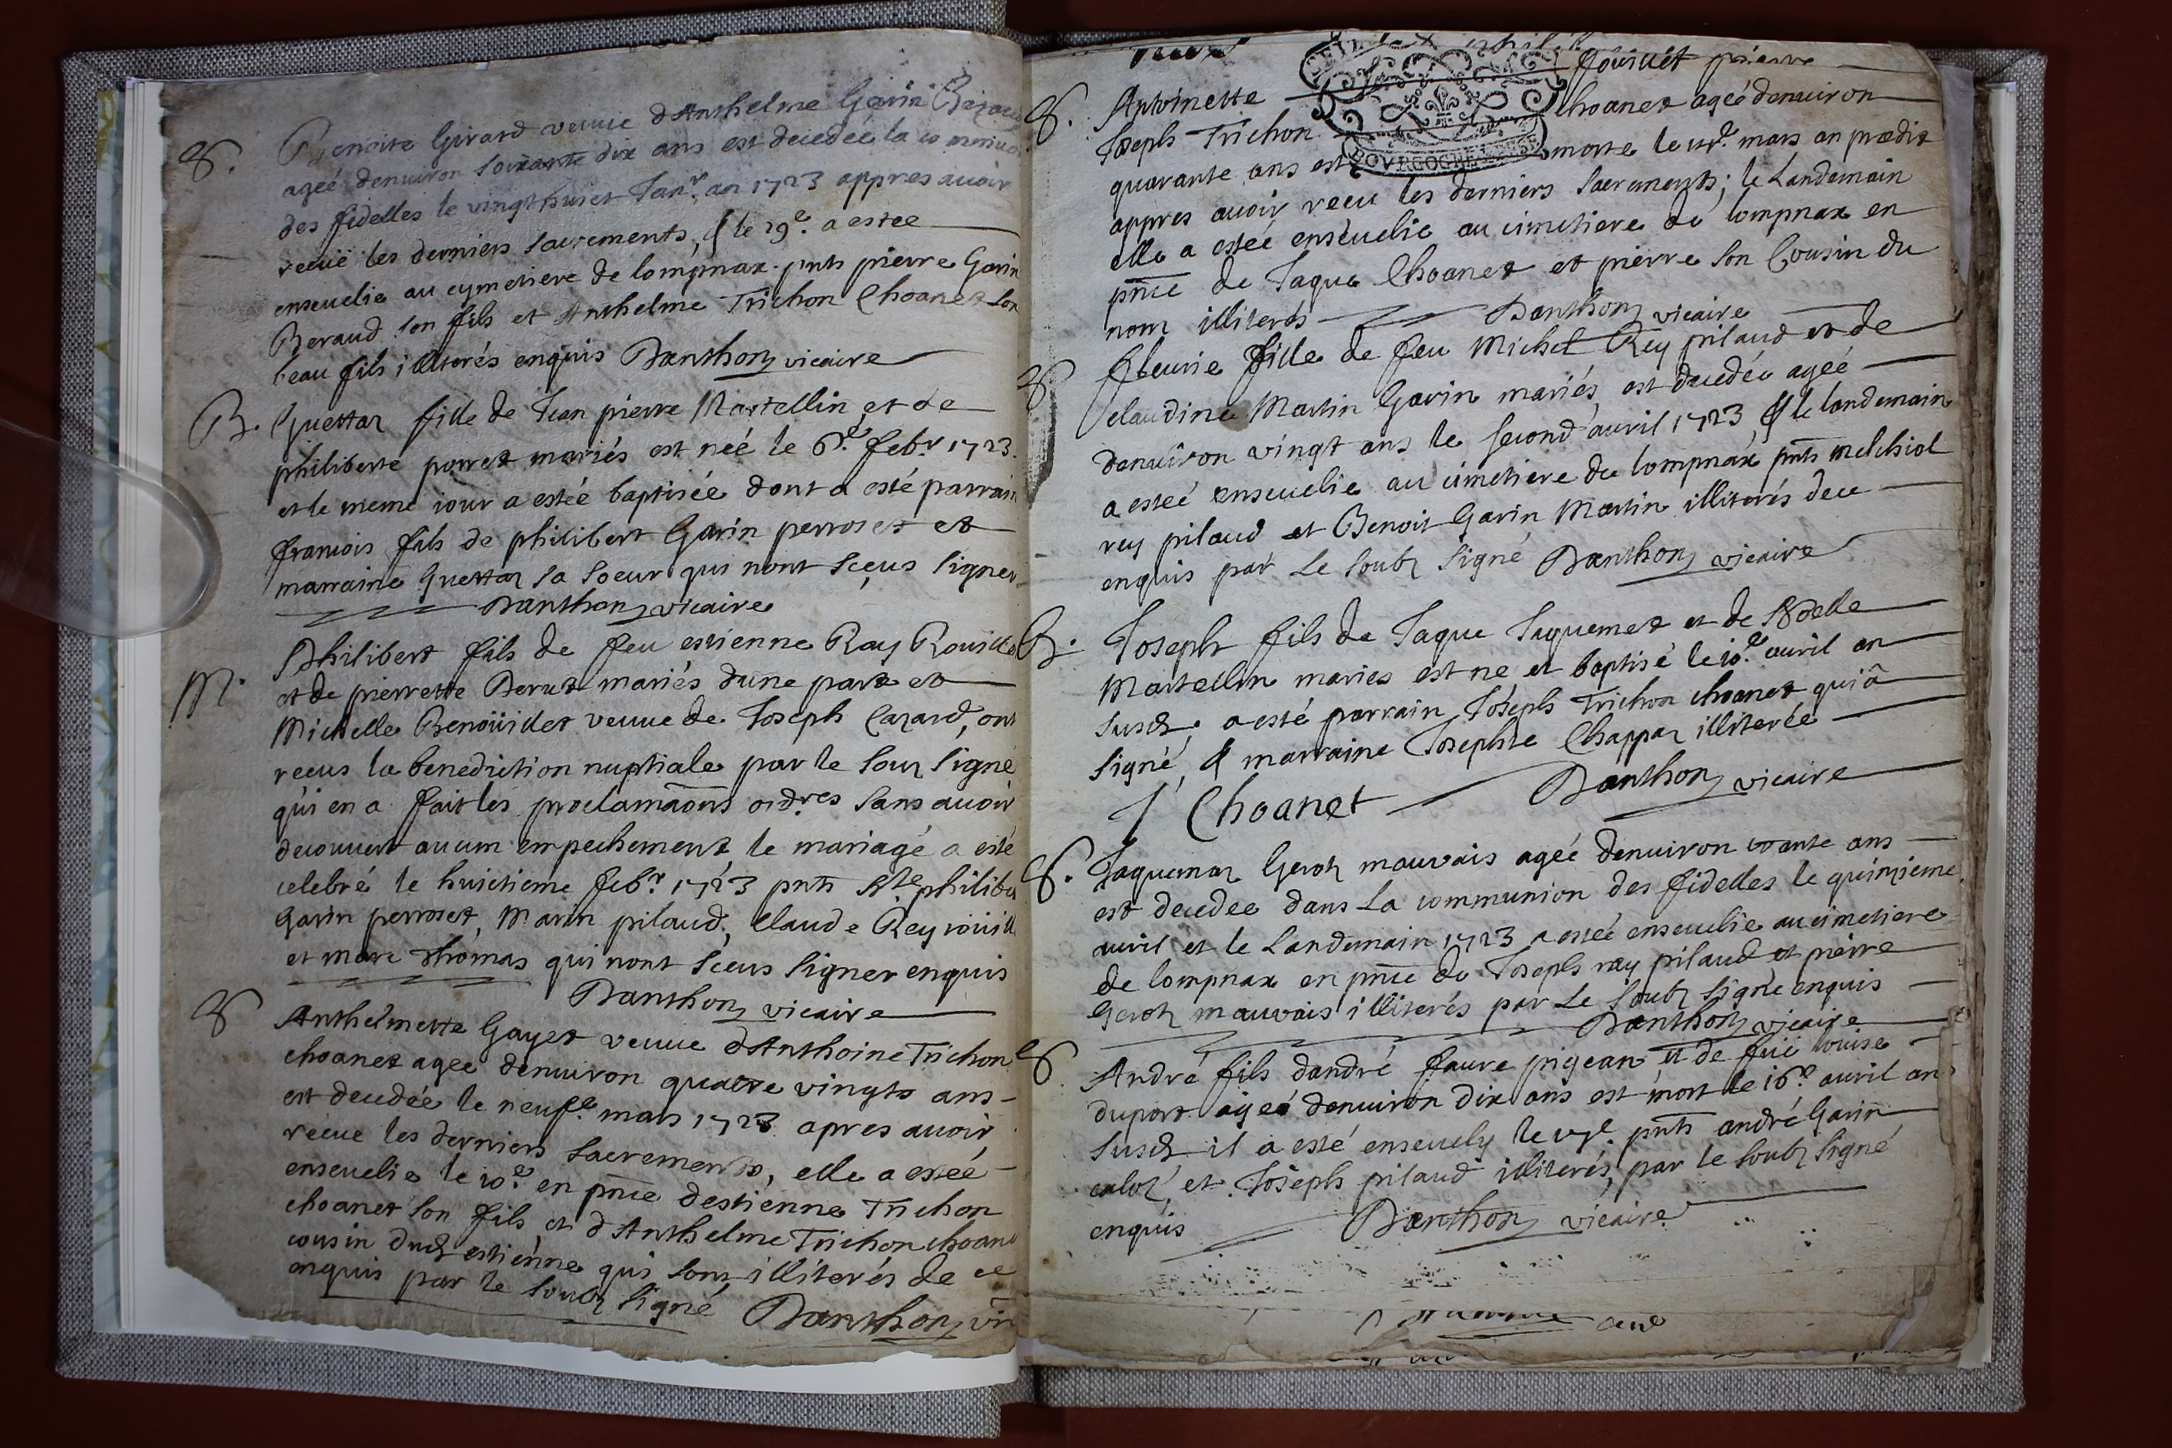 S. Benoite Girard veuve dAnthelme Garin
ageé denuiron soixante dix ans est decedée la
des fidelles le vingt huict Janr. an 1723 appres auoir
receüe les derniers sacrements, & le 29e. a estee
enseuelie au cymetiere de lompnax. pnts pierre Garin
Beraud son fils et Anthelme Trichon Choanet son
beau fils illiterés enquis Danthon vicaire
B. Guettaz fille de Jean pierre Martellin et de
philiberte porret mariés est née le 6e. febr. 1723.
et le meme iour a estée baptisée dont a esté parrain
francois fils de philibert Garin perroset et
marraine Guettaz sa soeur qui nont sceus signer
Danthon vicaire
M. Philibert fils de feu estienne Ray Rouille
et de pierrette Derut mariés dune part et
Michelle Benoüillet veuue de Joseph Cazard, ont
receus la benediction nuptiale par le souz signe
qui en a fait les proclamaõns ordres sans auoir
decouuert aucun empechement, le mariage a esté
celebré le huictieme febr. 1723 pnts Ste. philiber
Garin perroset, Marin pilaud, Claude Rey rouill
et marc Thomas qui nont sceus signer enquis
Danthon vicaire
S Anthelmette Gayet veuue dAnthoine Trichon
choanet agee denuiron quatre vingts ans
est decedée le neufe. mars 1723 apres auoir
receue les derniers sacrements, elle a esteé
enseuelie le 10e. en pnce destienne Trichon
choanet son fils et dAnthelme Trichon choane
cousin dud estienne qui sont illiterés de ce
enquis par le soubz signé Danthon vic
S. Antoinette pouillet pierre
Joseph Trichon Choanet ageé denuiron
quarante ans est morte le mars an prædit
BOVRGOGNE
appres auoir receu les derniers sacrements; le Landemain
elle a esteé enseuelie au cimetiere de lompnax en
pnce de Jaque Choanet et pierre son Cousin du
nom illiterés Danthon vicaire
S fleurie fille de feu Michel Rey pilaud et de
claudine Martin Garin mariés est decedée ageé
denuiron vingt ans le second auril 1723, & le landemain
a esteé enseuelie au cimetiere de lompnax pnts melchiol
rey pilaud et Benoit Garin Martin illiterés de ce
enquis par Le soubz signé Danthon vicaire
B. Joseph fils de Jaque Jaquemet et de
Martellin mariés est ne et baptisé le 10e. auril an
susd. a esté parrain Joseph Trichon choanet qui a
signé, & marraine Josephte Chappaz illiterée
J Choanet Danthon vicaire
S. Jaquemaz Geroz mauvais ageé denuiron ans
est decedee dans La communion des fidelles le quinzieme
auril et le Landemain 1723 a esteé enseuelie au cimetiere
de lompnax en pnce de Joseph ray pilaud et pierre
Geroz mauvais illiterés par Le soubz signé enquis
Danthon vicaire
S André fils dandré faure pigean et de feüe louise
duport ageé denuiron dix ans est mort le 16e. auril an
susd il a esté enseuely le pnts andré Garin
caloz et Joseph pilaud illiterés, par le soubz signé
enquis Danthon vicaire